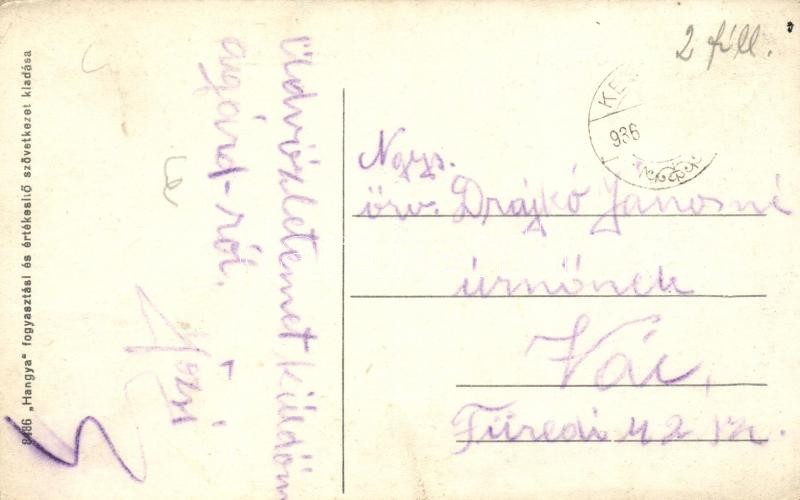 8186 „Hangya“ fogyasztási és értékesítő szövetkezet kiadása
Üdvözletemet küldöm
agárd-ról.
Józsi
2 fill.
KE
936
Ngys.
özv. Drajkó Jánosné
úrnőnek
Vác,
Füredi 42 sz.